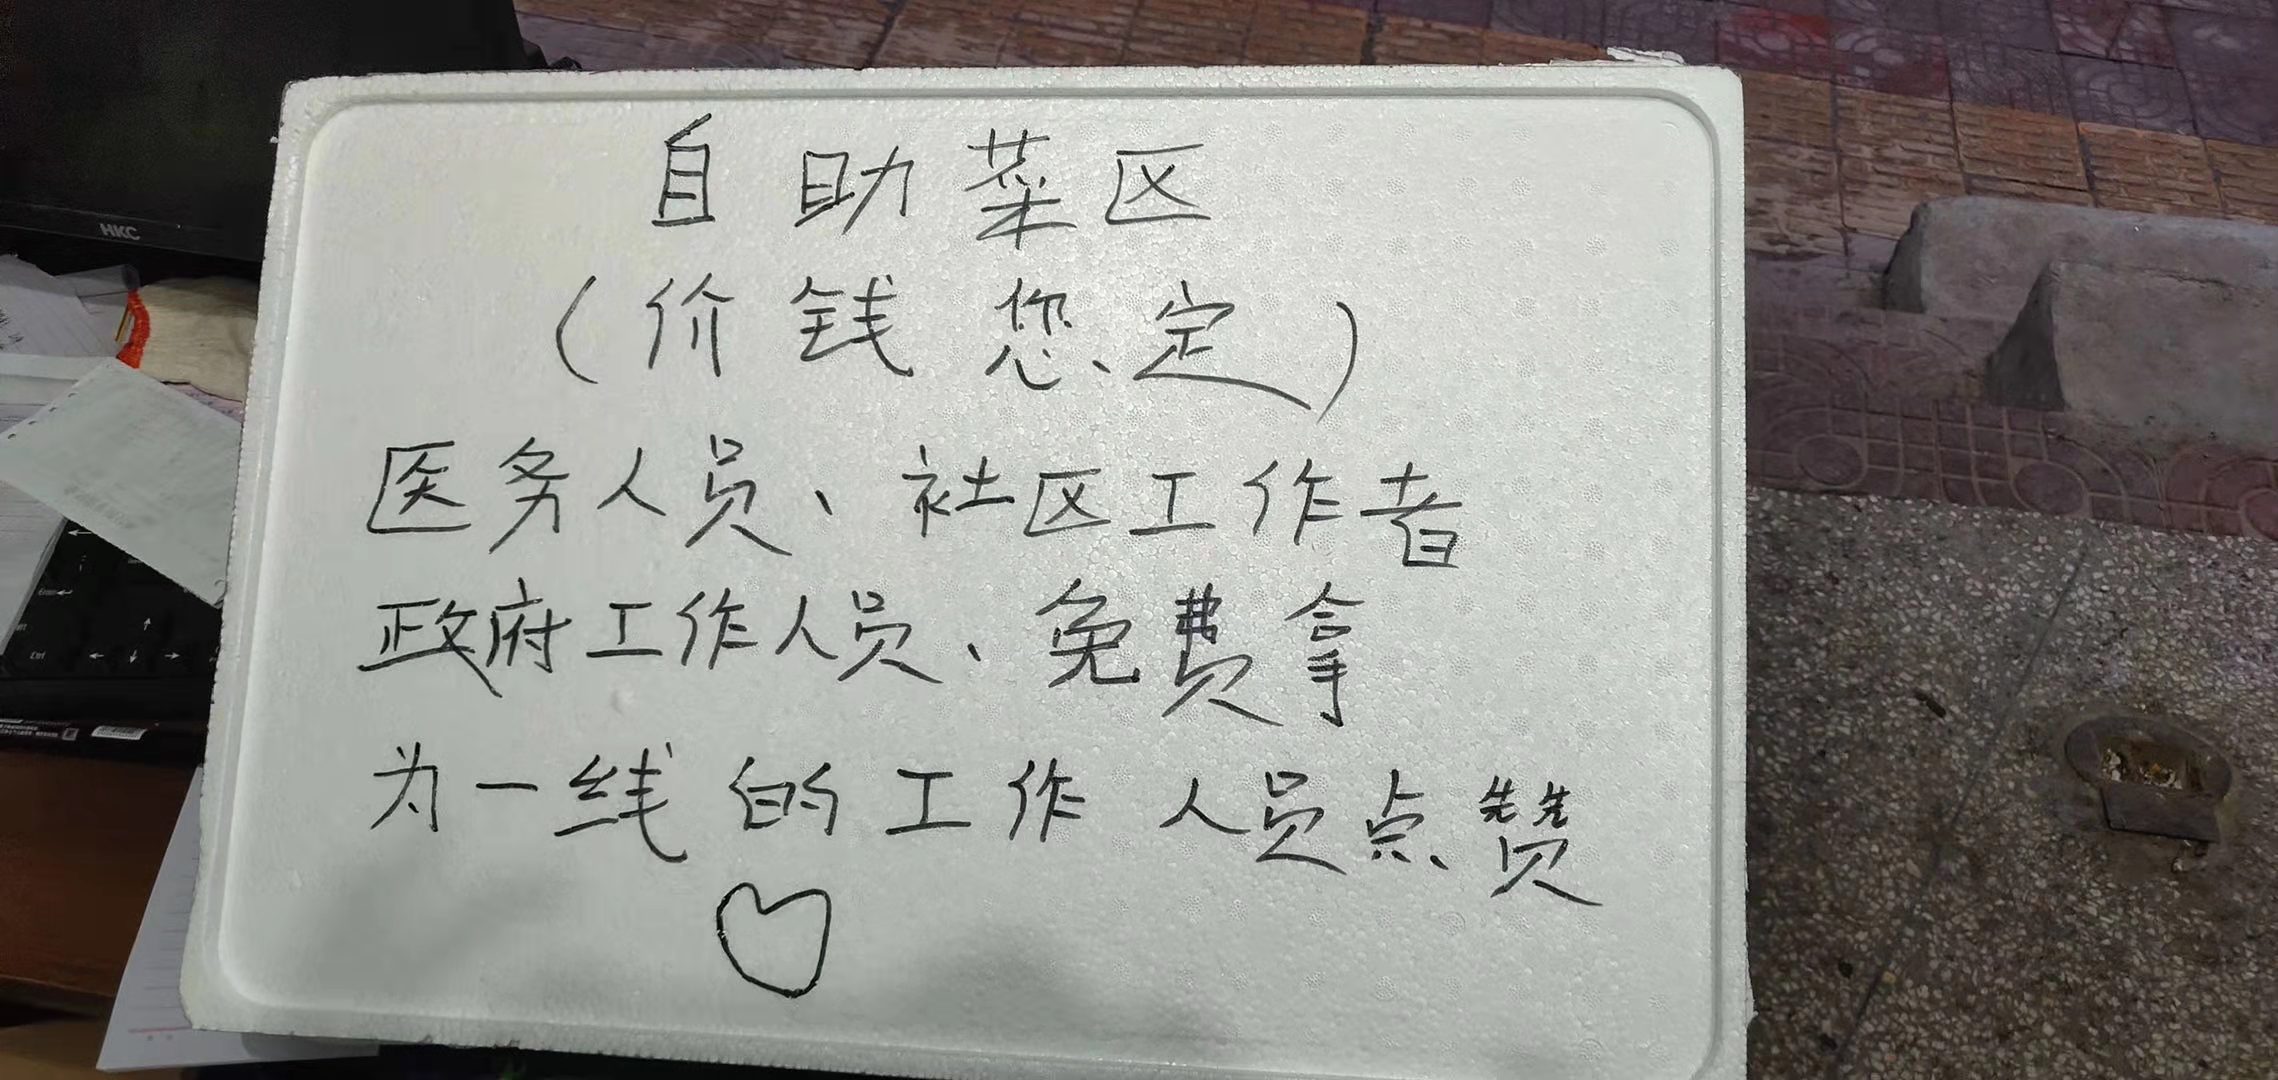 自助菜区
(价钱您定)
医务人员、社区工作者
政府工作人员、免费拿
为一线的工作人员点赞
HKC
Enter
Ctrl